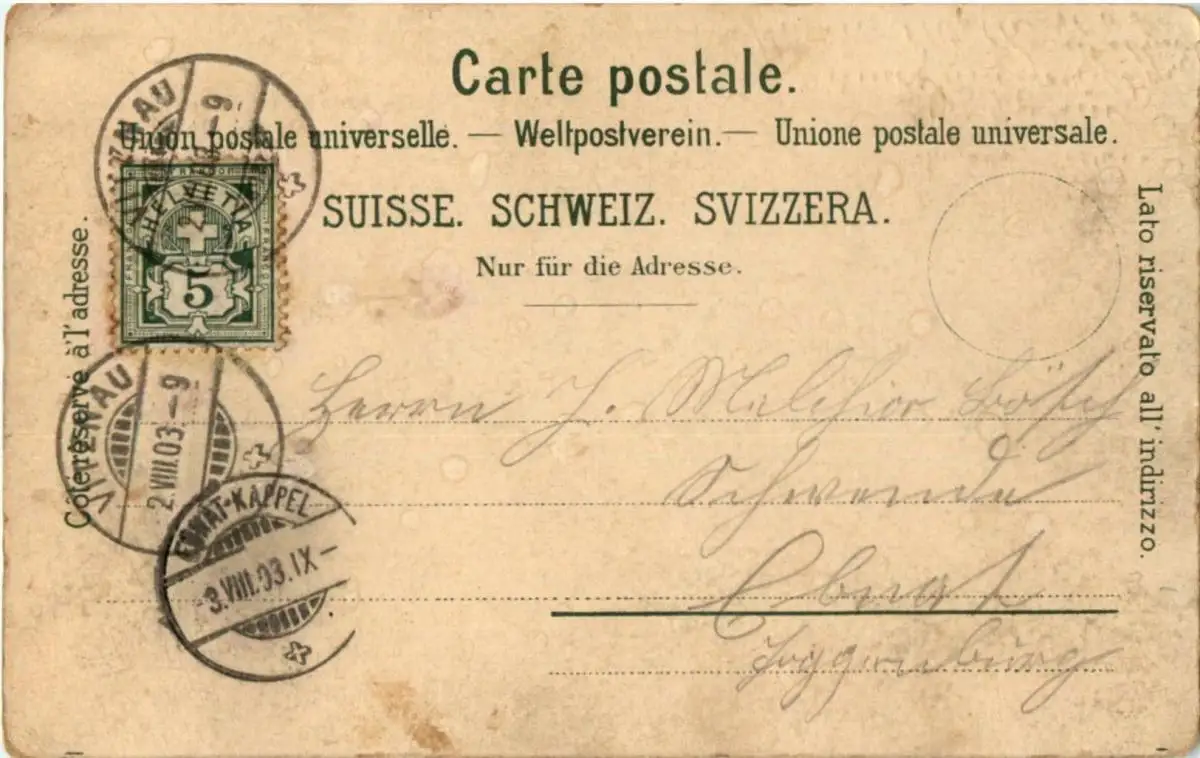 Carte postale.
Union postale universelle. — Weltpostverein. — Unione postale universale.
SUISSE. SCHWEIZ. SVIZZERA.
Nur für die Adresse.
Côté réservé à l'adresse.
Lato riservato all' indirizzo.
FRANCO
HELVETIA
5
VITZNAU
2.VIII.03–9
VITZNAU
2.VIII.03–9
EBNAT-KAPPEL
3.VIII.03.IX–
Herrn J. Melchior Bösch
Schwende
Ebnat
Toggenburg